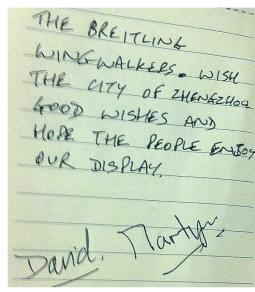 THE BREITLING
WINGWALKERS. WISH
THE CITY OF ZHENGZHOU
GOOD WISHES AND
HOPE THE PEOPLE ENJOY
OUR DISPLAY.
David. Martyn.